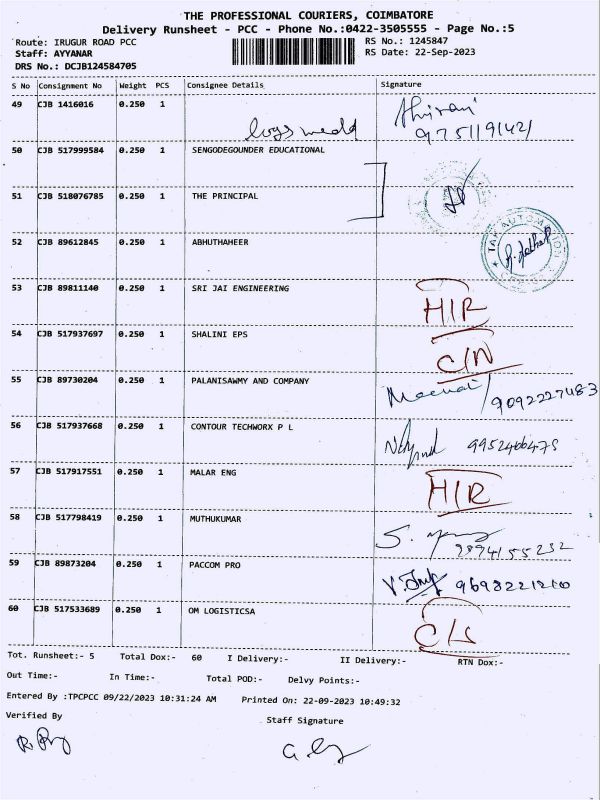 THE PROFESSIONAL COURIERS, COIMBATORE
Delivery Runsheet - PCC - Phone No.:0422-3505555 - Page No.:5
Route: IRUGUR ROAD PCC RS No.: 1245847
Staff: AYYANAR RS Date: 22-Sep-2023
DRS No.: DCJB124584705
S No Consignment No Weight PCS Consignee Details Signature
49 CJB 1416016 0.250 1
9751191421
50 CJB 517999584 0.250 1 SENGODEGOUNDER EDUCATIONAL
51 CJB 518076785 0.250 1 THE PRINCIPAL
52 CJB 89612845 0.250 1 ABHUTHAHEER
53 CJB 89811140 0.250 1 SRI JAI ENGINEERING
H/R
54 CJB 517937697 0.250 1 SHALINI EPS
C/N
55 CJB 89730204 0.250 1 PALANISAWMY AND COMPANY
9092227483
56 CJB 517937668 0.250 1 CONTOUR TECHWORX P L
9952466475
57 CJB 517917551 0.250 1 MALAR ENG
H/R
58 CJB 517798419 0.250 1 MUTHUKUMAR
9894155232
59 CJB 89873204 0.250 1 PACCOM PRO
60 CJB 517533689 0.250 1 OM LOGISTICSA
Tot. Runsheet:- 5 Total Dox:- 60 I Delivery:- II Delivery:- RTN Dox:-
Out Time:- In Time:- Total POD:- Delvy Points:-
Entered By :TPCPCC 09/22/2023 10:31:24 AM Printed On: 22-09-2023 10:49:32
Verified By Staff Signature